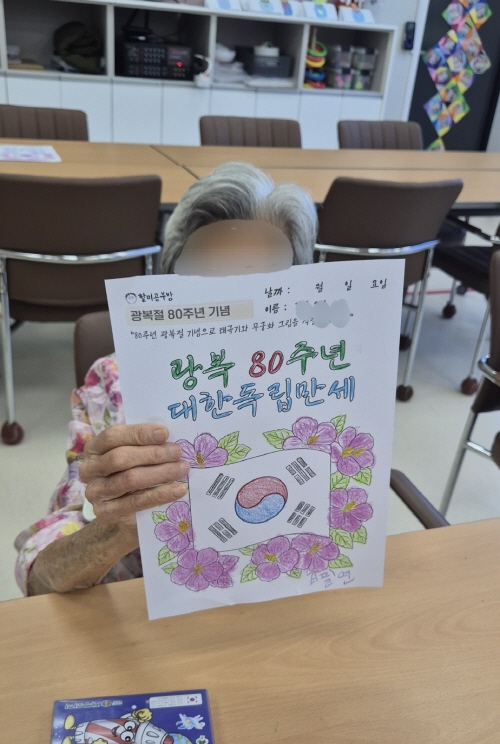 할미공부방
날짜 : 월 일 요일
광복절 80주년 기념
이름 :
"80주년 광복절 기념으로 태극기와 무궁화 그림을
광복 80주년
대한독립만세